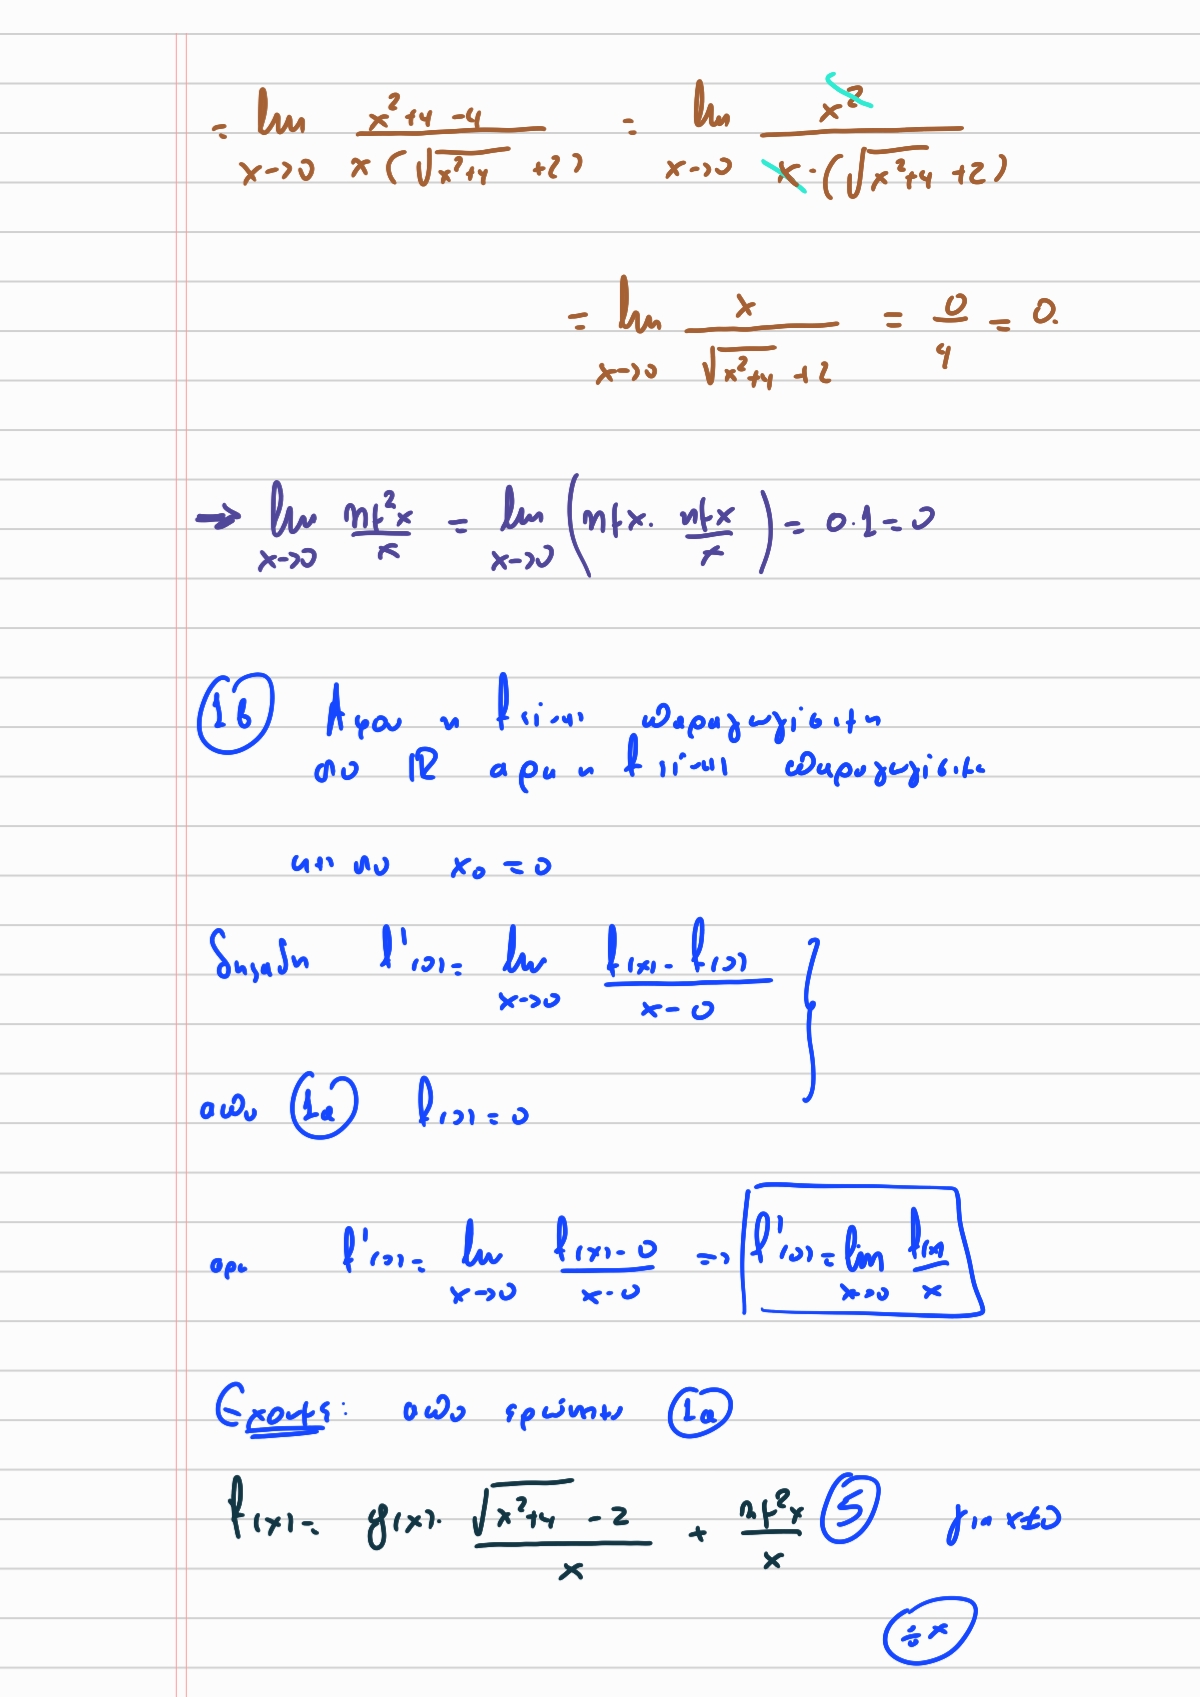 = lim x→0 (x²+4-4)/(x(√(x²+4) +2)) = lim x→0 x²/(x·(√(x²+4) +2))
= lim x→0 x/(√(x²+4) +2) = 0/4 = 0.
⇒ lim x→0 ημ²x/x = lim x→0 (ημx · ημx/x) = 0·1=0
1β Αφου η f ειναι παραγωγίσιμη
στο ℝ αρα η f είναι παραγωγίσιμη
και στο x₀ = 0
δηλαδη f'(0) = lim x→0 (f(x) - f(0))/(x-0) }
απο 1α f(0) = 0
αρα f'(0) = lim x→0 (f(x)-0)/(x-0) ⇒ f'(0) = lim x→0 f(x)/x
Εχουμε: απο ερώτημα 1α
f(x) = g(x)· (√(x²+4) -2)/x + ημ²x/x 5 για x≠0
÷x